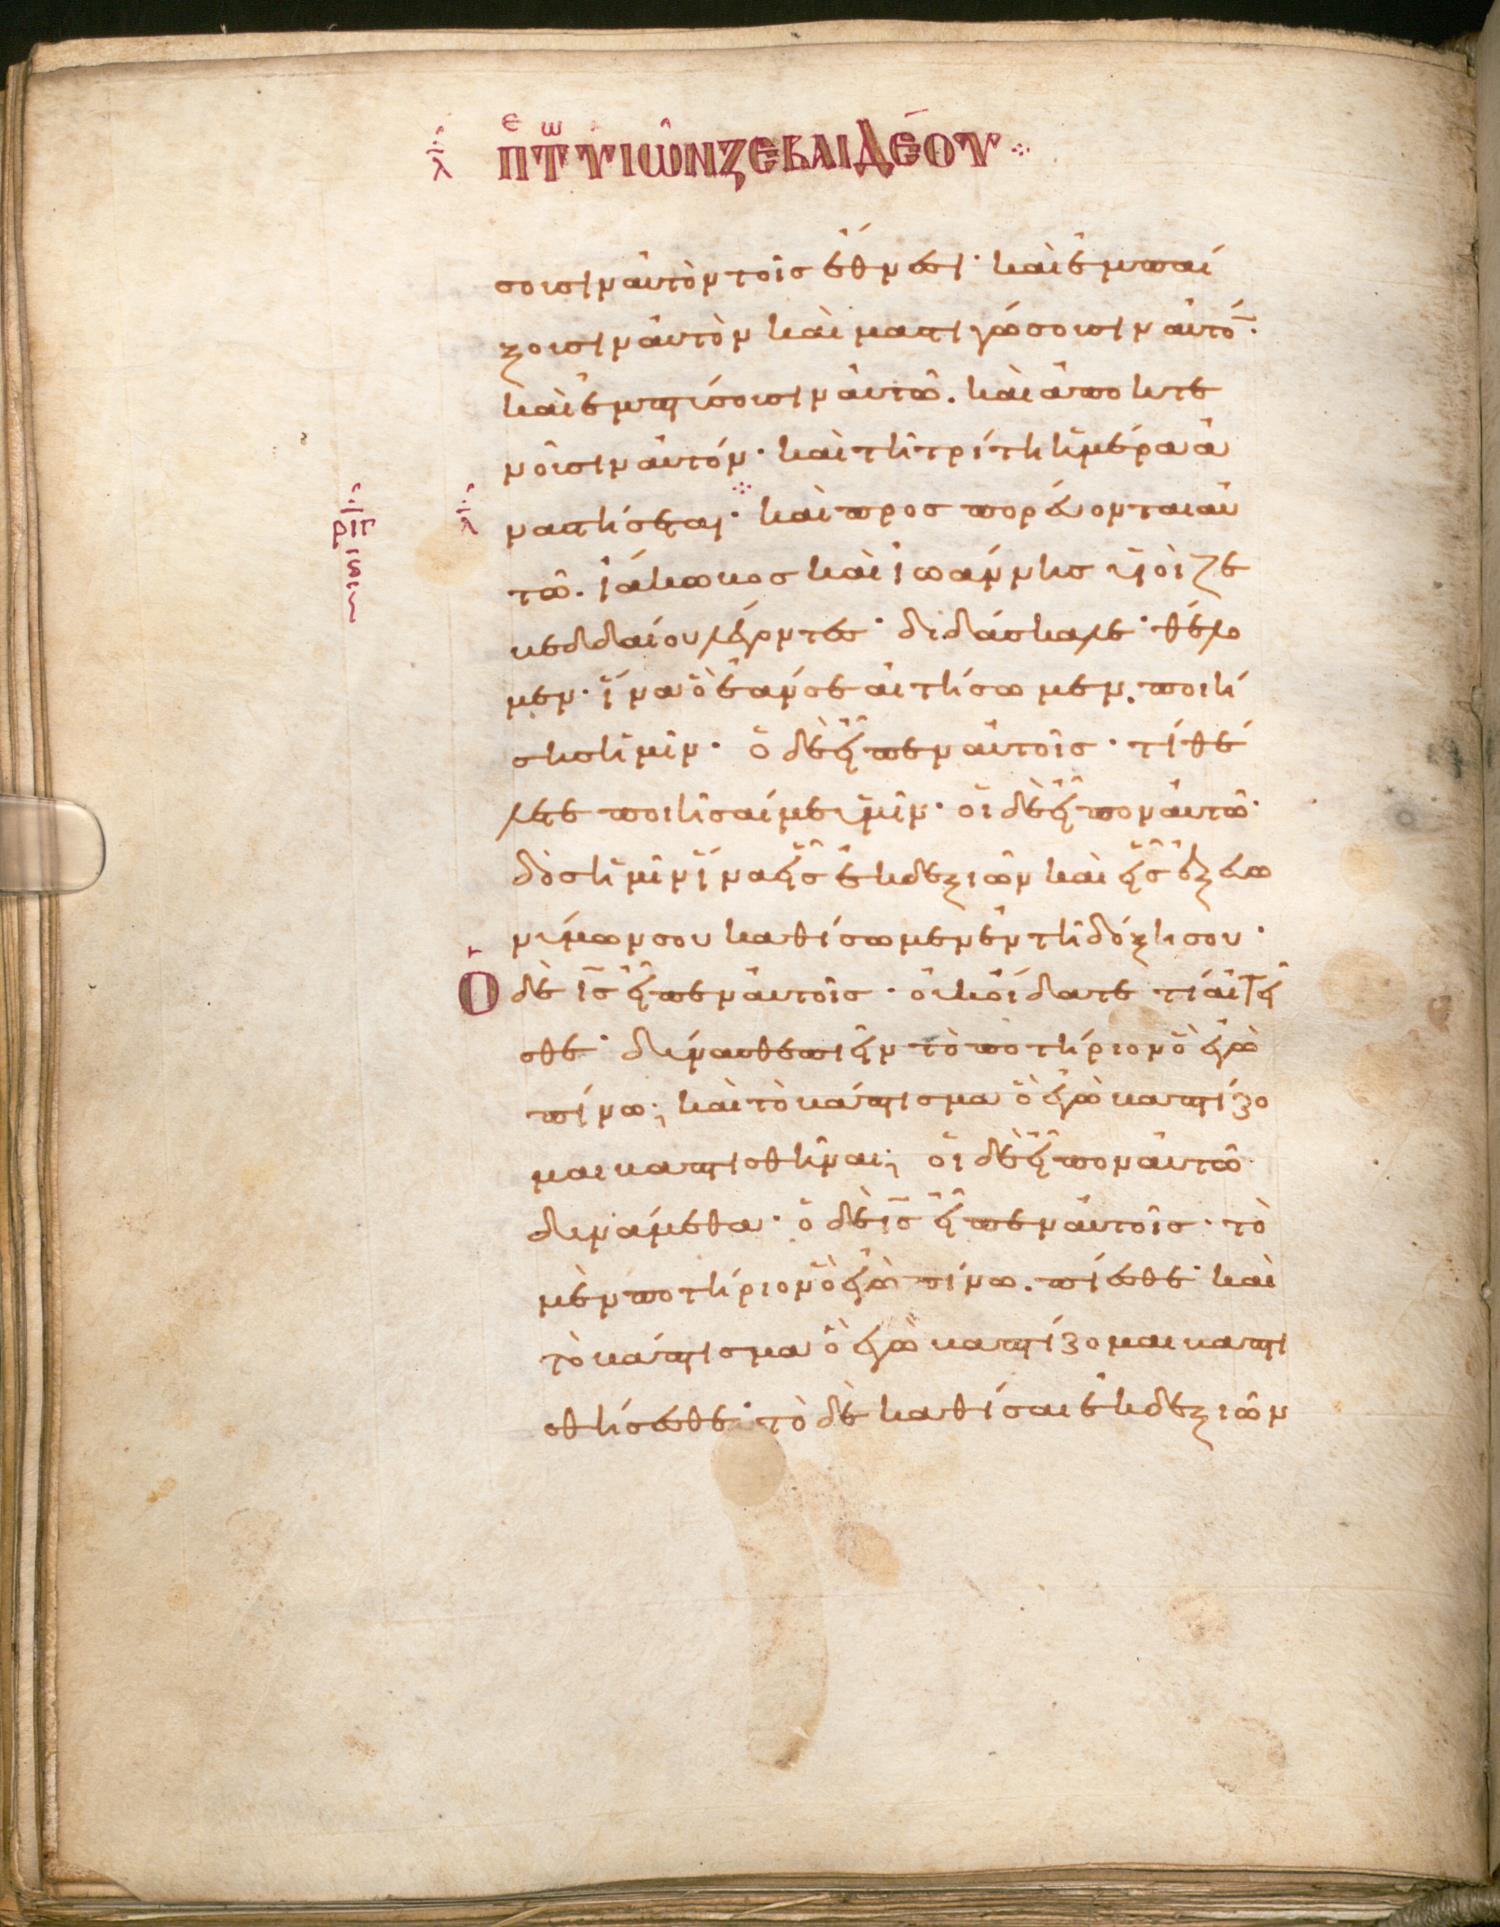 λ πε τω υἱῶν ζεβαιδέου
σουσιν αὐτὸν τοῖς ἔθνεσι· καὶ ἐμπαί
ξουσιν αὐτὸν καὶ μαστιγώσουσιν αὐτό̄·
καὶ ἐμπτύσουσιν αὐτῶ. καὶ ἀποκτε
νοῦσιν αὐτόν· καὶ τῆ τρίτη ἡμέρα ἀ
λ
ναστήσεται· καὶ προσπορεύονται αὐ
ριπ
τῶ. ἰάκωβος καὶ ἰωάννης υἱοὶ ζε
βεδδαίου λέγοντες· διδάσκαλε· θέλο
μεν· ἵνα ὃ ἐάν σε αἰτήσωμεν. ποιή
σης ἡμῖν· ὁ δὲ εἶπεν αὐτοῖς· τί θέ
λετε ποιῆσαί με ὑμῖν· οἱ δὲ εἶπον αὐτῶ·
δὸς ἡμῖν ἵνα εἷς ἐκ δεξιῶν καὶ εἷς ἐξ εὐω
νύμων σου καθίσωμεν ἐν τῆ δόξη σου·
Ὁ δὲ ι̅ς̅ εἶπεν αὐτοῖς· οὐκ οἴδατε τί αἰτεῖ
σθε· δύνασθε πιεῖν τὸ ποτήριον ὃ ἐγὼ
πίνω; καὶ τὸ βάπτισμα ὃ ἐγὼ βαπτίζο
μαι βαπτισθῆναι; οἱ δὲ εἶπον αὐτῶ·
δυνάμεθα· ὁ δὲ ι̅ς̅ εἶπεν αὐτοῖς· τὸ
μὲν ποτήριον ὃ ἐγὼ πίνω. πίεσθε· καὶ
τὸ βάπτισμα ὃ ἐγὼ βαπτίζομαι βαπτι
σθήσεσθε· τὸ δὲ καθίσαι ἐκ δεξιῶν